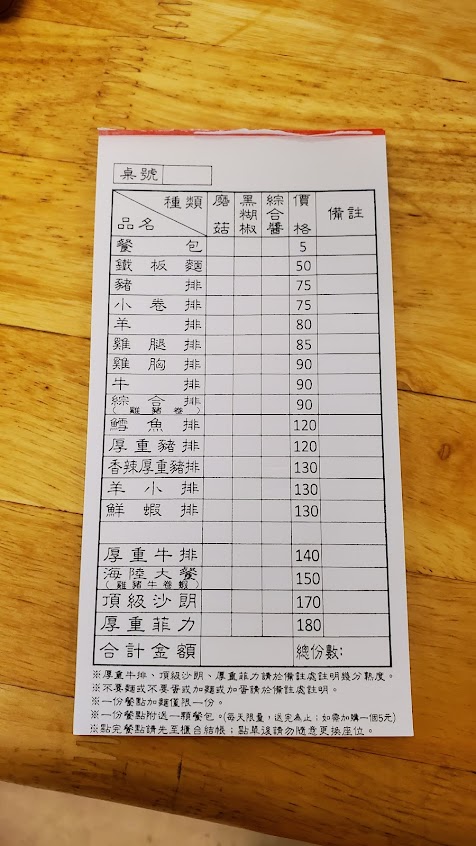 桌號
種類 磨菇 黑糊椒 綜合醬 價格 備註
品名
餐包 5
鐵板麵 50
豬排 75
小卷排 75
羊排 80
雞腿排 85
雞胸排 90
牛排 90
綜合排 90
(雞豬卷)
鱈魚排 120
厚重豬排 120
香辣厚重豬排 130
羊小排 130
鮮蝦排 130
厚重牛排 140
海陸大餐 150
(雞豬牛卷蝦)
頂級沙朗 170
厚重菲力 180
合計金額 總份數:
※厚重牛排、頂級沙朗、厚重菲力請於備註處註明幾分熟度。
※不要麵或不要蛋或加麵或加蛋請於備註處註明。
※一份餐點加麵僅限一份。
※一份餐點附送一顆餐包。(每天限量,送完為止;如需加購一個5元)
※點完餐點請先至櫃台結帳;點單後請勿隨意更換座位。